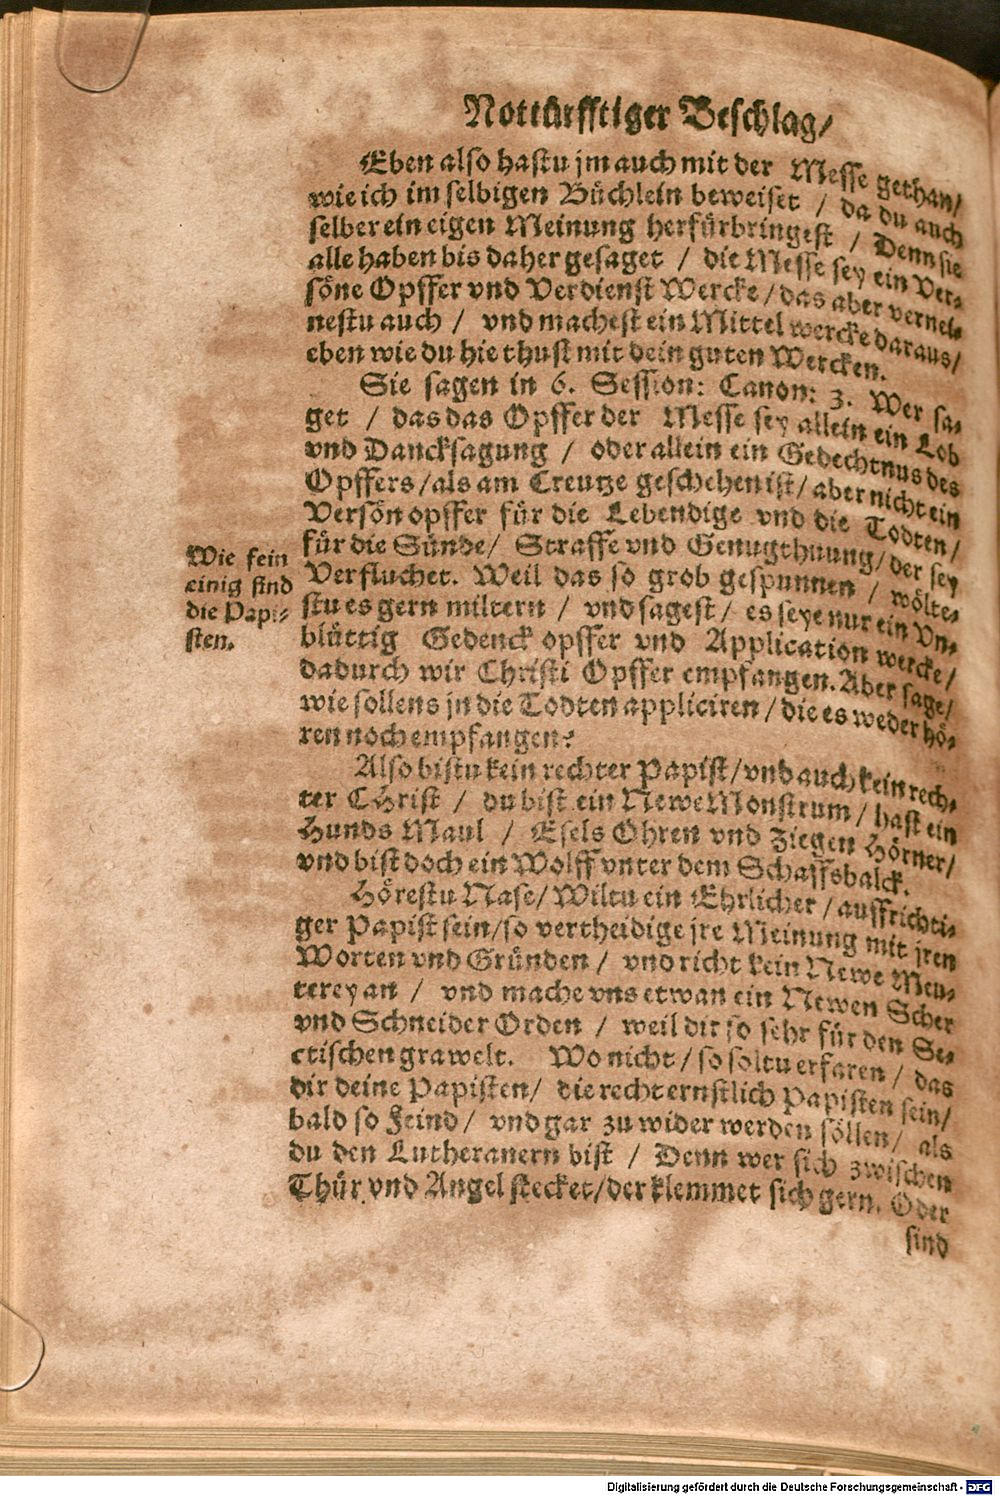 Nottürfftiger Beschlag/
Eben also hastu jm auch mit der Messe gethan/
wie ich im selbigen Büchlein beweiset / da du auch
selber ein eigen Meinung herfürbringest / Denn sie
alle haben bis daher gesaget / die Messe sey ein Ver-
söne Opffer vnd Verdienst Wercke / das aber vernei-
nestu auch / vnd machest ein Mittel wercke daraus/
eben wie du hie thust mit dein guten Wercken.
Sie sagen in 6. Session: Canon: 3. Wer sa-
get / das das Opffer der Messe sey allein ein Lob
vnd Dancksagung / oder allein ein Gedechtnus des
Opffers/als am Creutze geschehen ist/ aber nicht ein
Versönopffer für die Lebendige vnd die Todten/
für die Sünde/ Straffe vnd Genugthuung/ der sey
Verfluchet. Weil das so grob gespunnen / wölte-
stu es gern miltern / vnd sagest/ es seye nur ein Vn-
blüttig Gedenck opffer vnd Application wercke/
dadurch wir Christi Opffer empfangen. Aber sage/
wie sollens jn die Todten appliciren / die es weder hö-
ren noch empfangen?
Wie fein
einig sind
die Papi-
sten.
Also bistu kein rechter Papist/vnd auch kein rech-
ter CHrist / du bist ein Newe Monstrum / hast ein
Hunds Maul / Esels Ohren vnd Ziegen Hörner/
vnd bist doch ein Wolff vnter dem Schaffsbalck.
Hörestu Nase/ Wiltu ein Ehrlicher / auffrichti-
ger Papist sein/so vertheidige jre Meinung mit jren
Worten vnd Gründen / vnd richt kein Newe Meu-
terey an / vnd mache vns etwan ein Newen Scher
vnd Schneider Orden / weil dir so sehr für den Se-
ctischen grawelt. Wo nicht / so soltu erfaren / das
dir deine Papisten/ die recht ernstlich Papisten sein/
bald so Feind / vnd gar zu wider werden söllen/ als
du den Lutheranern bist / Denn wer sich zwischen
Thür vnd Angel stecket/der klemmet sich gern. Oder
sind
Digitalisierung gefördert durch die Deutsche Forschungsgemeinschaft - DFG